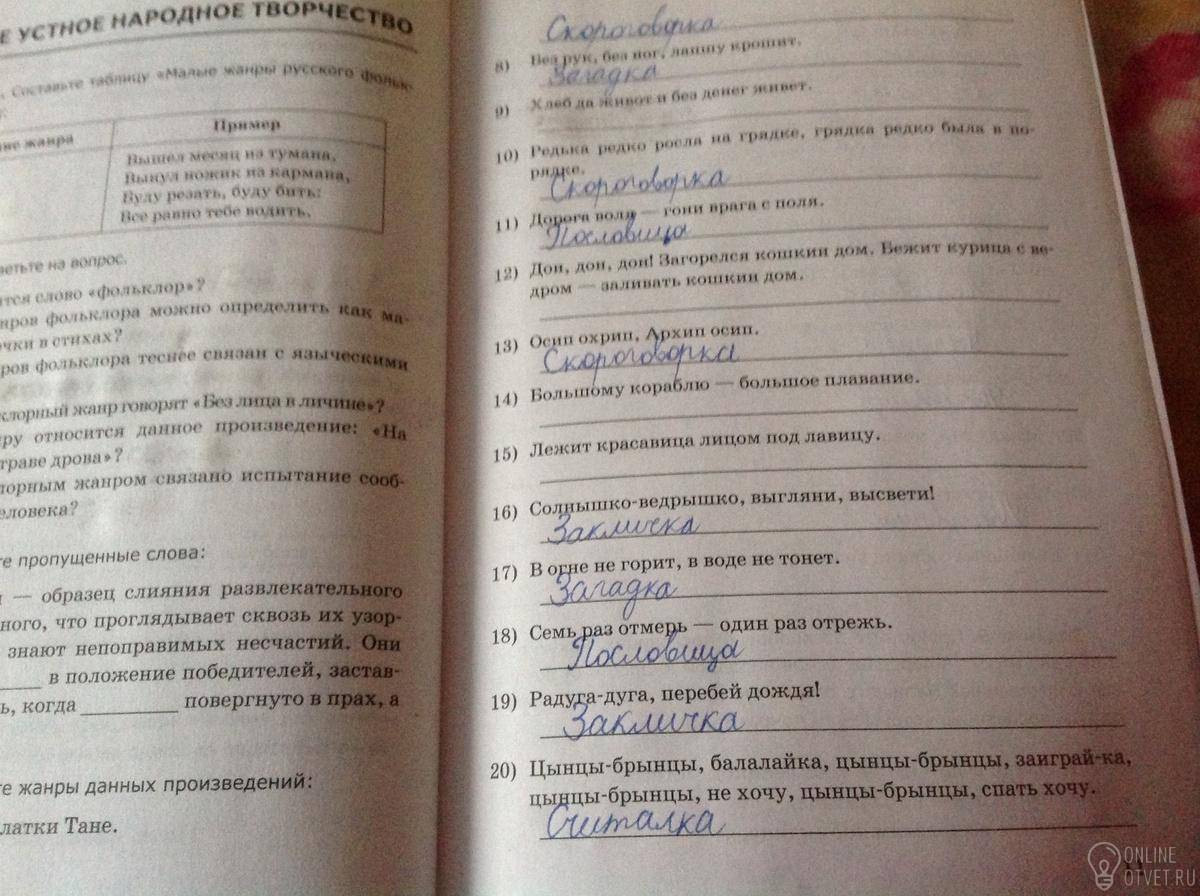 Е УСТНОЕ НАРОДНОЕ ТВОРЧЕСТВО
. Составьте таблицу «Малые жанры русского фольк-
ие жанра
Пример
Вышел месяц из тумана,
Вынул ножик из кармана,
Буду резать, буду бить:
Все равно тебе водить.
ветьте на вопрос.
ится слово «фольклор»?
нров фольклора можно определить как ма-
очки в стихах?
ров фольклора теснее связан с языческими
клорный жанр говорят «Без лица в личине»?
ру относится данное произведение: «На
траве дрова»?
лорным жанром связано испытание сооб-
еловека?
те пропущенные слова:
— образец слияния развлекательного
ного, что проглядывает сквозь их узор-
знают непоправимых несчастий. Они
в положение победителей, застав-
ь, когда повергнуто в прах, а
те жанры данных произведений:
латки Тане.
Скороговорка
8) Без рук, без ног, лапшу крошит.
Загадка
9) Хлеб да живот и без денег живет.
10) Редька редко росла на грядке, грядка редко была в по-
рядке.
Скороговорка
11) Дорога воля — гони врага с поля.
Пословица
12) Дон, дон, дон! Загорелся кошкин дом. Бежит курица с ве-
дром — заливать кошкин дом.
13) Осип охрип, Архип осип.
Скороговорка
14) Большому кораблю — большое плавание.
15) Лежит красавица лицом под лавицу.
16) Солнышко-ведрышко, выгляни, высвети!
Закличка
17) В огне не горит, в воде не тонет.
Загадка
18) Семь раз отмерь — один раз отрежь.
Пословица
19) Радуга-дуга, перебей дождя!
Закличка
20) Цынцы-брынцы, балалайка, цынцы-брынцы, заиграй-ка,
цынцы-брынцы, не хочу, цынцы-брынцы, спать хочу.
Считалка
ONLINE
OTVET.RU